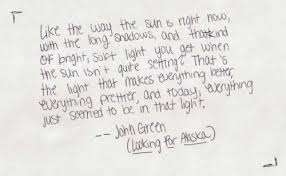 Like the way the sun is right now,
with the long shadows, and that kind
of bright, soft light you get when
the sun isn't quite setting? That's
the light that makes everything better,
everything prettier, and today, everything
just seemed to be in that light.
-- John Green
(Looking for Alaska)